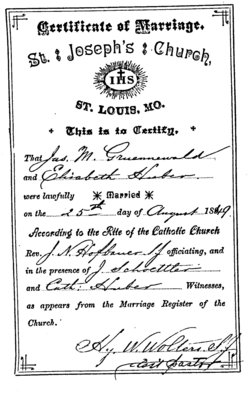 Certificate of Marriage.
St. Joseph's Church,
IHS
ST. LOUIS, MO.
This is to Certify,
That Jas. M. Gruennewald
and Elizabeth Huber
were lawfully Married
on the 25th day of August 1849
According to the Rite of the Catholic Church
Rev. J. N. Hofbauer S.J. officiating, and
in the presence of J. Schoettler
and Cath. Huber Witnesses,
as appears from the Marriage Register of the
Church.
Hy. W. Wolters, S.J.